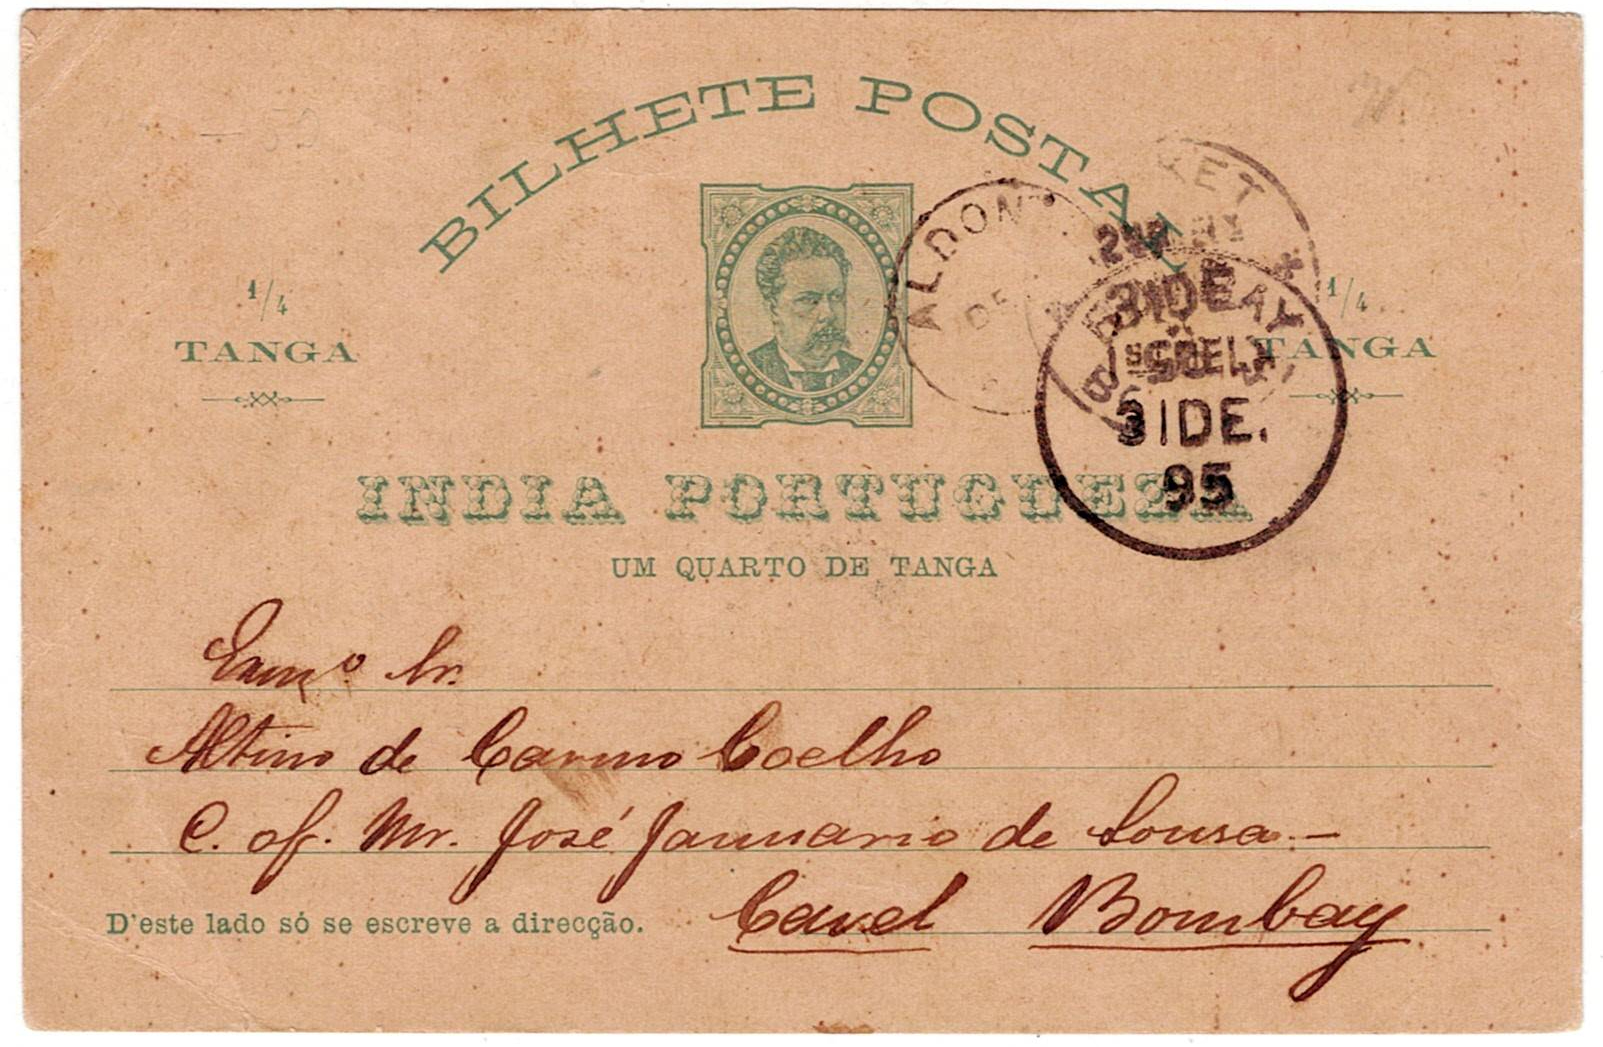 BILHETE POSTAL
1/4
TANGA
1/4
TANGA
ALDON
DE
KET
BOMBAY
31 DE.
95
INDIA PORTUGUEZA
UM QUARTO DE TANGA
Exmo Sr.
Altino de Carmo Coelho
C. of. Mr. José Januario de Sousa.—
D'este lado só se escreve a direcção.
Cavel Bombay